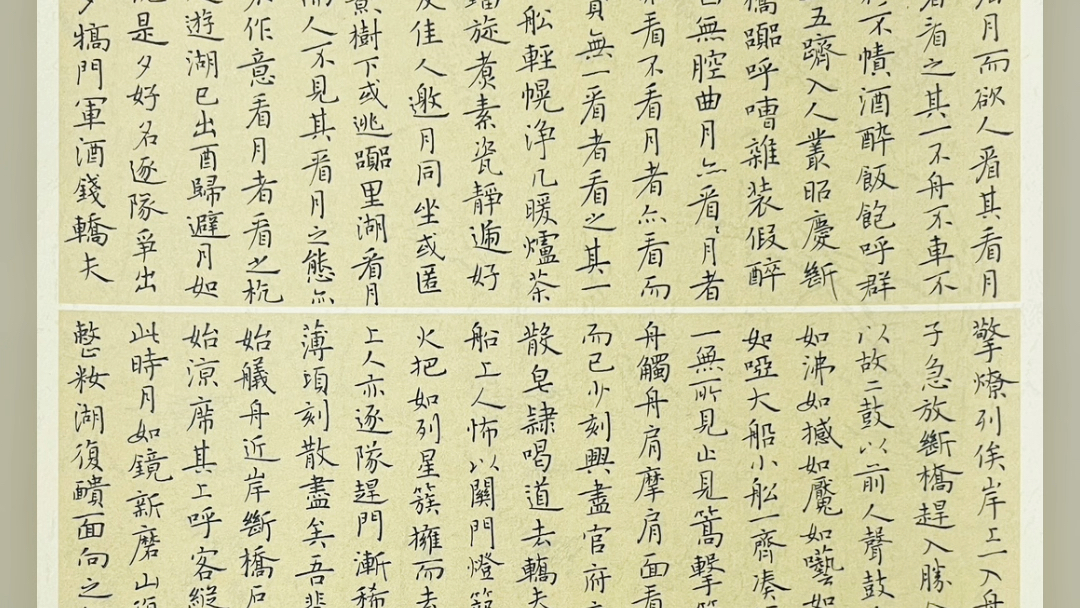 月而欲人看其看月
者看之其一不舟不車不
衫不幘酒醉飯飽呼群
五躋入人叢昭慶斷
橋呼嘈雜装假醉
無腔曲月亦看〻月者
看不看月者亦看而
實無一看者看之其一
舩輕幌浄几暖爐茶
鐺旋煮素瓷靜遞好
友佳人邀月同坐或匿
影樹下或逃里湖看月
而人不見其看月之態亦
不作意看月者看之杭
遊湖巳出酉歸避月如
仇是夕好名逐隊爭出
多犒門軍酒錢轎夫
擎燎列俟岸上一入舟
子急放斷橋趕入勝
以故二鼓以前人聲鼓
如沸如撼如魘如囈如
如啞大船小舩一齊湊
一無所見止見篙擊篙
舟觸舟肩摩肩面看
而已少刻興盡官府
散皂隸喝道去轎夫
船上人怖以關門燈籠
火把如列星簇擁而去
上人亦逐隊趕門漸稀
薄頃刻散盡矣吾輩
始艤舟近岸斷橋石
始涼席其上呼客縱
此時月如鏡新磨山復
整妝湖復面向之